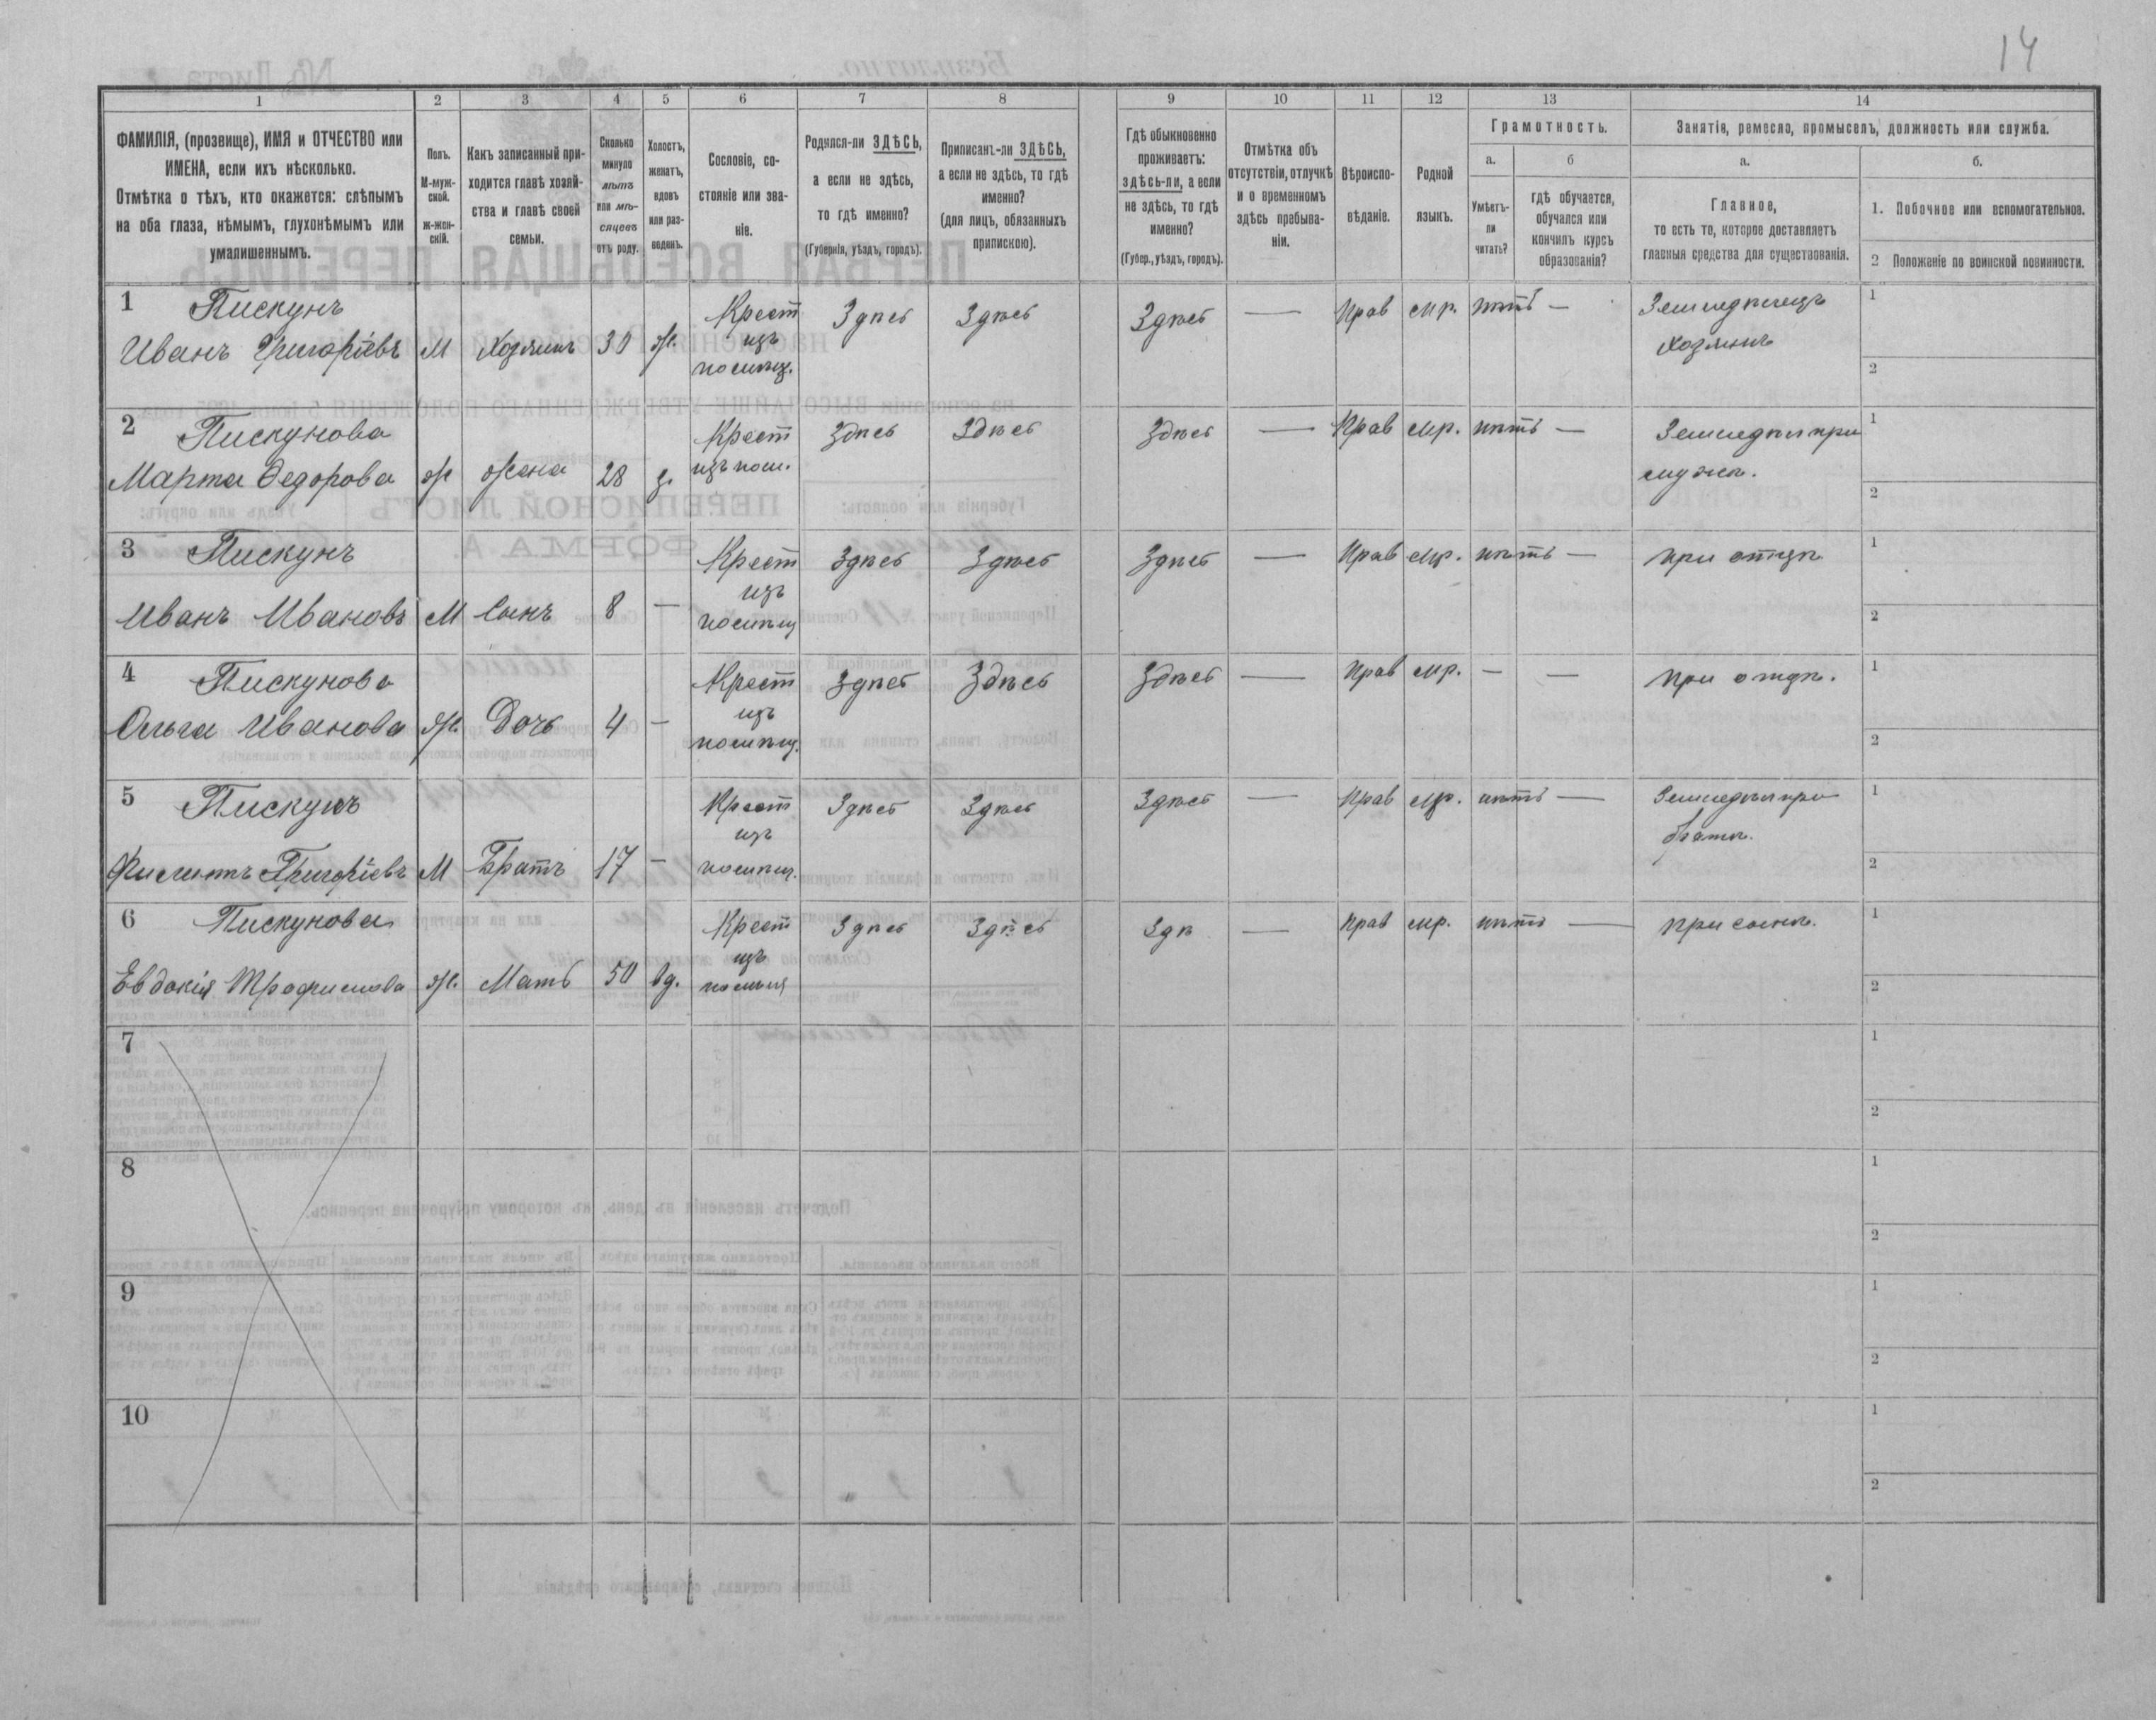 14
1 2 3 4 5 6 7 8 9 10 11 12 13 14
ФАМИЛІЯ, (прозвище), ИМЯ и ОТЧЕСТВО или
ИМЕНА, если ихъ нѣсколько.
Отмѣтка о тѣхъ, кто окажется: слѣпымъ
на оба глаза, нѣмымъ, глухонѣмымъ или
умалишеннымъ.
Полъ.
М-муж-
ской.
ж-жен-
скій.
Какъ записанный при-
ходится главѣ хозяй-
ства и главѣ своей
семьи.
Сколько
минуло
лѣтъ
или мѣ-
сяцевъ
отъ роду.
Холостъ,
женатъ,
вдовъ
или раз-
веденъ.
Сословіе, со-
стояніе или зва-
ніе.
Родился-ли ЗДѢСЬ,
а если не здѣсь,
то гдѣ именно?
(Губернія, уѣздъ, городъ).
Приписанъ-ли ЗДѢСЬ,
а если не здѣсь, то гдѣ
именно?
(для лицъ, обязанныхъ
припискою).
Гдѣ обыкновенно
проживаетъ:
здѣсь-ли, а если
не здѣсь, то гдѣ
именно?
(Губер., уѣздъ, городъ).
Отмѣтка объ
отсутствіи, отлучкѣ
и о временномъ
здѣсь пребыва-
ніи.
Вѣроиспо-
вѣданіе.
Родной
языкъ.
Грамотность.
а.
Умѣетъ-
ли
читать?
б
гдѣ обучается,
обучался или
кончилъ курсъ
образованія?
Занятіе, ремесло, промыселъ, должность или служба.
а.
Главное,
то есть то, которое доставляетъ
главныя средства для существованія.
б.
1. Побочное или вспомогательное.
2 Положеніе по воинской повинности.
1 Пискунъ
Иванъ Григоріевъ М Хозяинъ 30 ж.
Крест
изъ
помѣщ.
Здѣсь Здѣсь Здѣсь — Прав мр. нѣтъ —
Земледѣлецъ
хозяинъ
1
2
2 Пискунова
Марта Федорова ж жена 28 з.
Крест
изъ пом.
Здѣсь Здѣсь Здѣсь — Прав мр. нѣтъ —
Земледѣл при
мужѣ.
1
2
3 Пискунъ
Иванъ Ивановъ М Сынъ 8 —
Крест
изъ
помѣщ
Здѣсь Здѣсь Здѣсь — Прав мр. нѣтъ —
при отцѣ
1
2
4 Пискунова
Ольга Иванова ж. Дочь 4 —
Крест
изъ
помѣщ.
Здѣсь Здѣсь Здѣсь — Прав мр. — —
при отцѣ.
1
2
5 Пискунъ
Филиппъ Григоріевъ М Братъ 17 —
Крест
изъ
помѣщ.
Здѣсь Здѣсь Здѣсь — Прав мр. нѣтъ —
Земледѣл при
братѣ.
1
2
6 Пискунова
Евдокія Трофимова ж. Мать 50 вд.
Крест
изъ
помѣщ
Здѣсь Здѣсь Здѣ — Прав мр. нѣтъ —
при сынѣ.
1
2
7
1
2
8
1
2
9
1
2
10
1
2